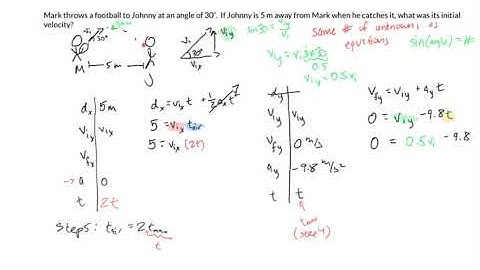 Mark throws a football to Johnny at an angle of 30°. If Johnny is 5 m away from Mark when he catches it, what was its initial
velocity?
30°
M
5 m
J
vᵢ
vᵢy
30°
vᵢx
sin30 = vᵢy/vᵢ
vᵢy = vᵢ sin30
0.5
vᵢy = 0.5vᵢ
same # of unknowns as
equations
sin(angle) = #
dx | 5m
vᵢx | vᵢx
vfx
→ a | 0
t | 2t
dx = vᵢx t + ½ax t²
5 = vᵢx tair
5 = vᵢx (2t)
dy
vᵢy | vᵢy
vfy | 0 m/s
ay | -9.8 m/s²
t | t
tmax
(see 4)
vfy = vᵢy + ay t
0 = vᵢy - 9.8t
0 = 0.5vᵢ - 9.8
step 5: tair = 2 tmax
t